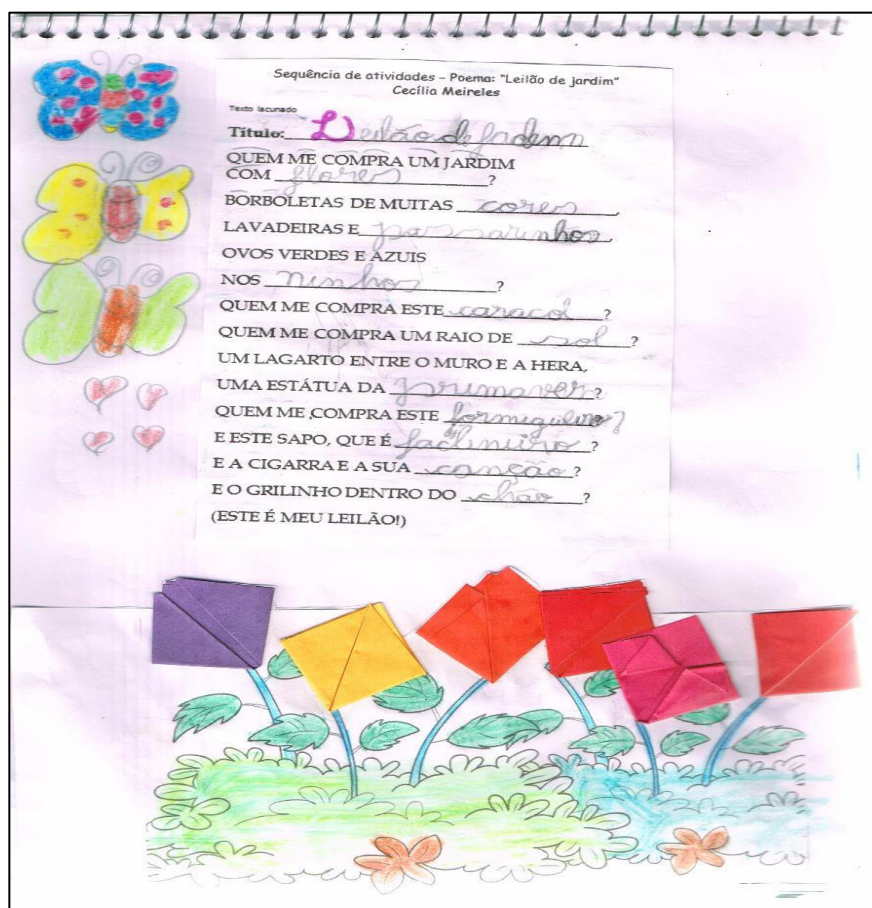 Sequência de atividades - Poema: "Leilão de jardim"
Cecília Meireles
Texto lacunado
Título: Leilão de jardem
QUEM ME COMPRA UM JARDIM
COM flores ?
BORBOLETAS DE MUITAS cores,
LAVADEIRAS E passarinhos,
OVOS VERDES E AZUIS
NOS ninhos ?
QUEM ME COMPRA ESTE caracol ?
QUEM ME COMPRA UM RAIO DE sol ?
UM LAGARTO ENTRE O MURO E A HERA,
UMA ESTÁTUA DA primaver ?
QUEM ME COMPRA ESTE formigueiro ?
E ESTE SAPO, QUE É ?
E A CIGARRA E A SUA canção ?
E O GRILINHO DENTRO DO chão ?
(ESTE É MEU LEILÃO!)